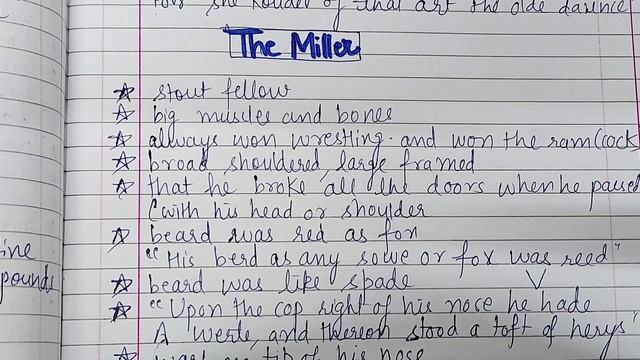 for she koude of that art the olde daunce
The Miller
☆ stout fellow
☆ big muscles and bones
☆ always won wrestling. and won the ram (cock
☆ broad shouldered, large framed
☆ that he broke all the doors when he paused
(with his head or shoulder
☆ beard was red as fox
ine
"His berd as any sowe or fox was reed"
pounds
☆ beard was like spade
☆ "Upon the cop right of his nose he hade
A werte, and thereon stood a toft of herys"
☆ tip of his nose